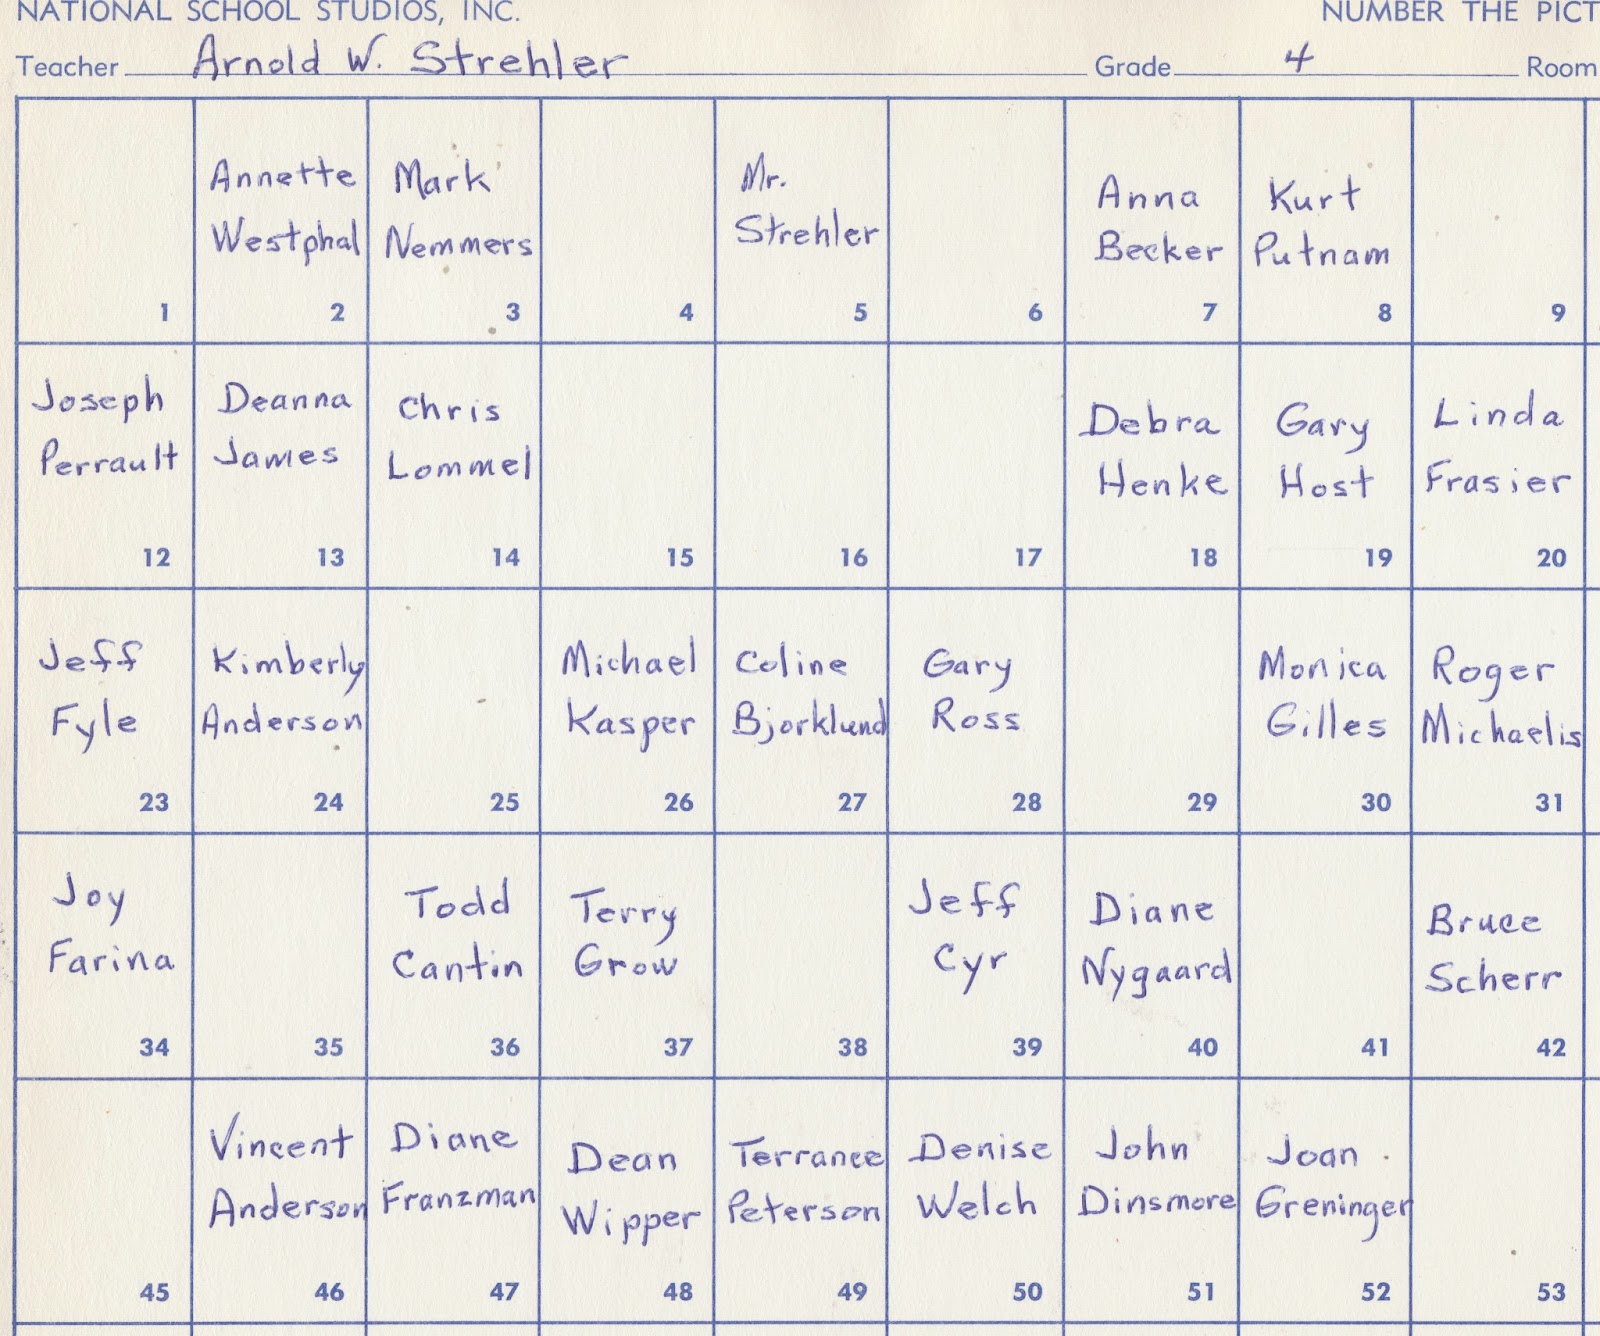 NATIONAL SCHOOL STUDIOS, INC. NUMBER THE PICT
Teacher Arnold W. Strehler Grade 4 Room
Annette Westphal
Mark Nemmers
Mr. Strehler
Anna Becker
Kurt Putnam
1 2 3 4 5 6 7 8 9
Joseph Perrault
Deanna James
Chris Lommel
Debra Henke
Gary Host
Linda Frasier
12 13 14 15 16 17 18 19 20
Jeff Fyle
Kimberly Anderson
Michael Kasper
Coline Bjorklund
Gary Ross
Monica Gilles
Roger Michaelis
23 24 25 26 27 28 29 30 31
Joy Farina
Todd Cantin
Terry Grow
Jeff Cyr
Diane Nygaard
Bruce Scherr
34 35 36 37 38 39 40 41 42
Vincent Anderson
Diane Franzman
Dean Wipper
Terrance Peterson
Denise Welch
John Dinsmore
Joan Greninger
45 46 47 48 49 50 51 52 53